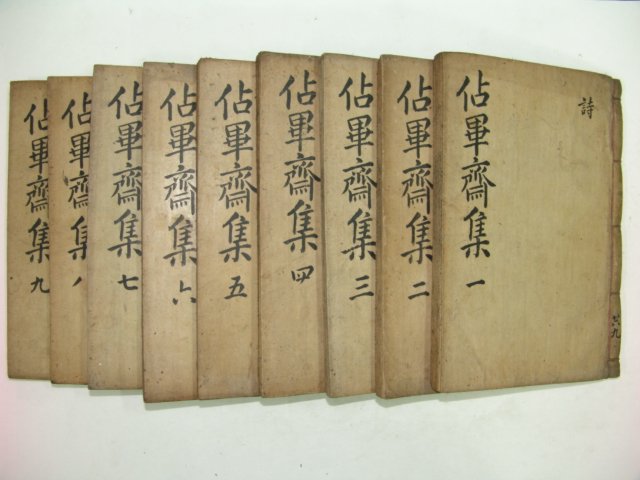 詩
共九
佔畢齋集 一
佔畢齋集 二
佔畢齋集 三
佔畢齋集 四
佔畢齋集 五
佔畢齋集 六
佔畢齋集 七
佔畢齋集 八
佔畢齋集 九